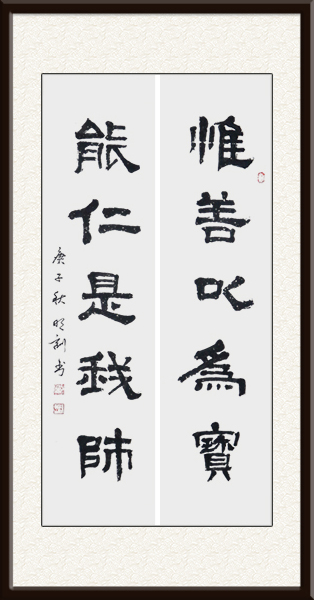 惟善以為寶
能仁是我師
庚子秋明利书